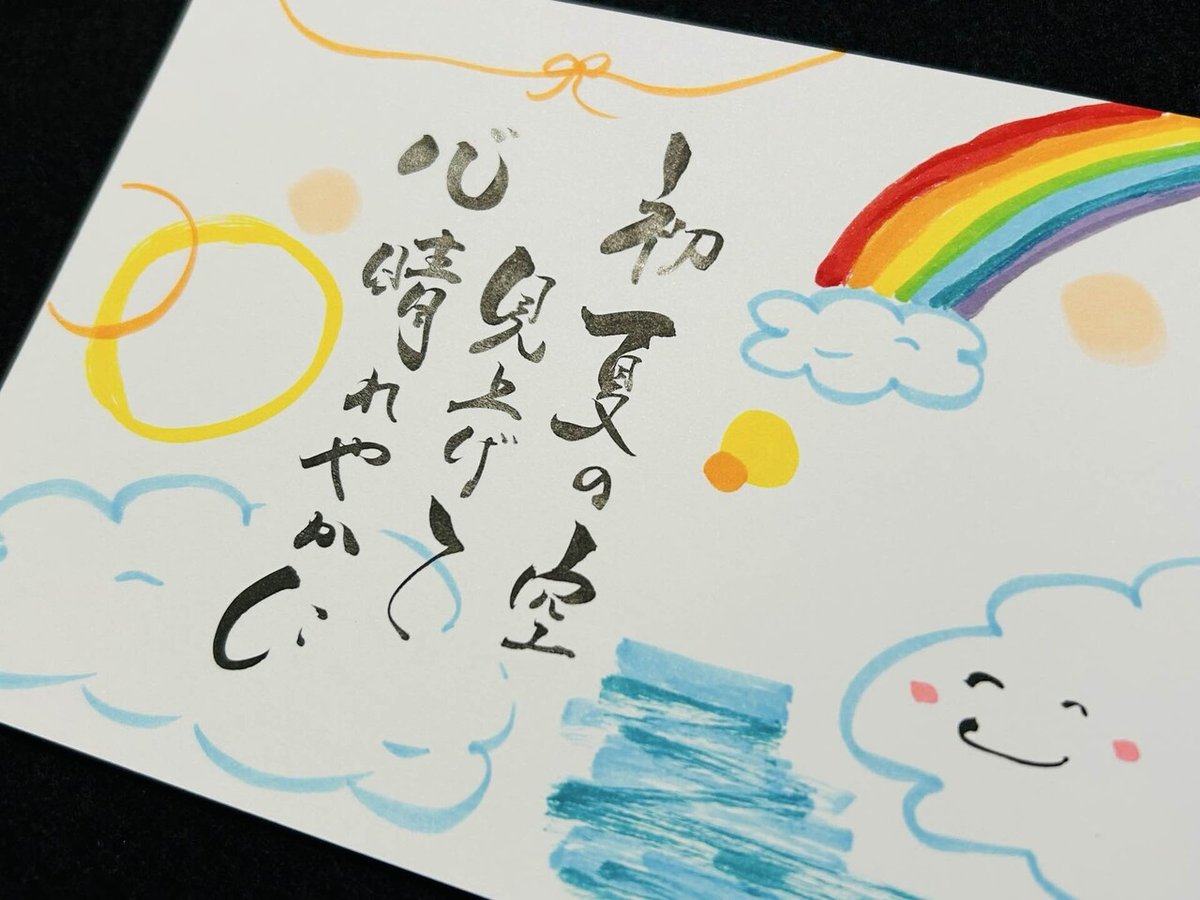 初夏の空
見上げて
心晴れやかに